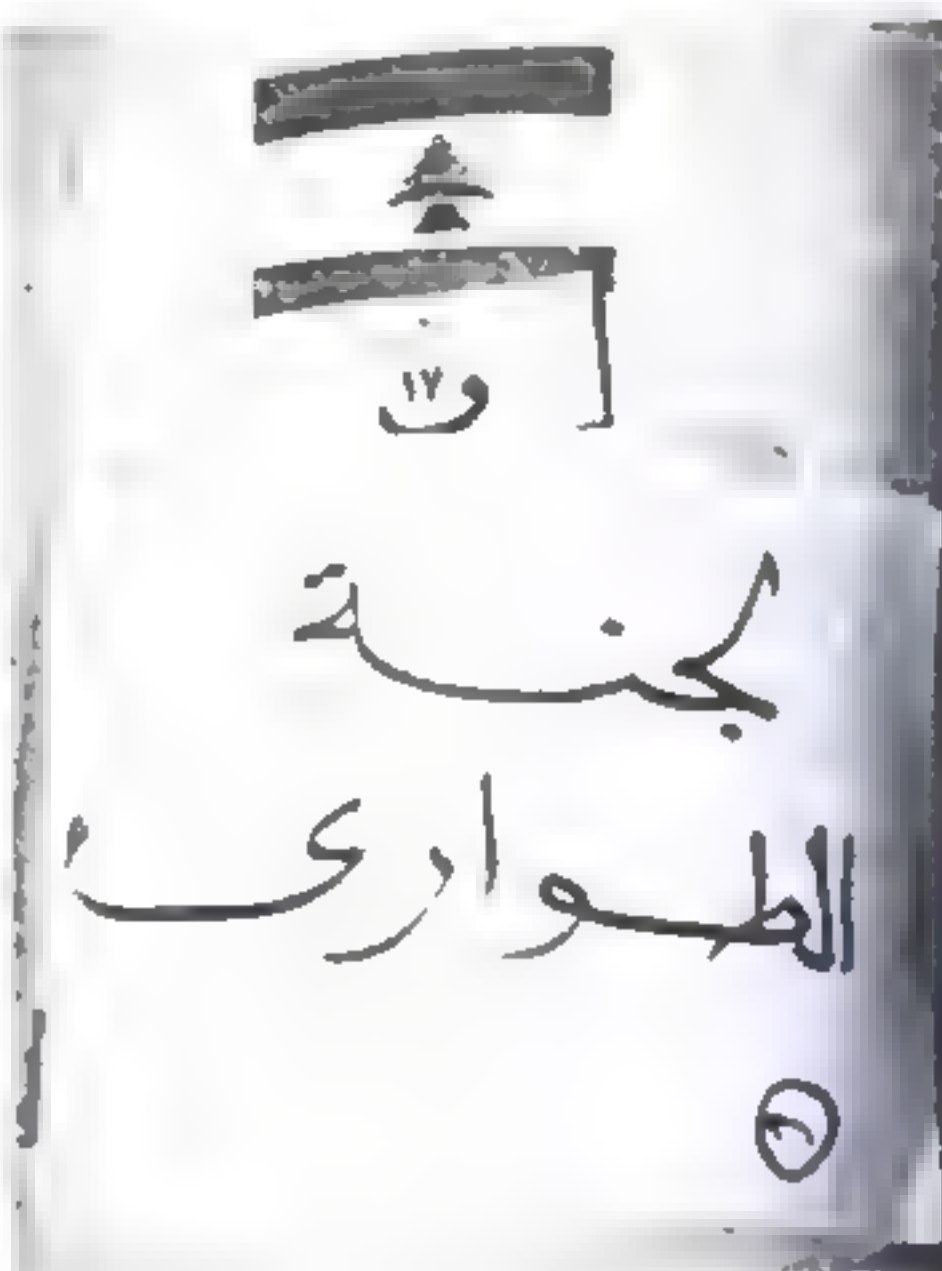 ت ١٧
لجنة
الطوارئ